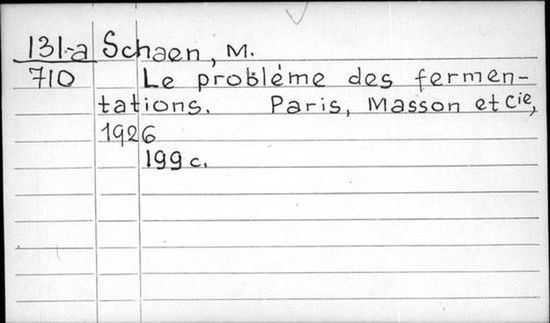 131-a Schaen, M.
710 Le probléme des fermen-
tations. Paris, Masson et Cie,
1926
199 c.